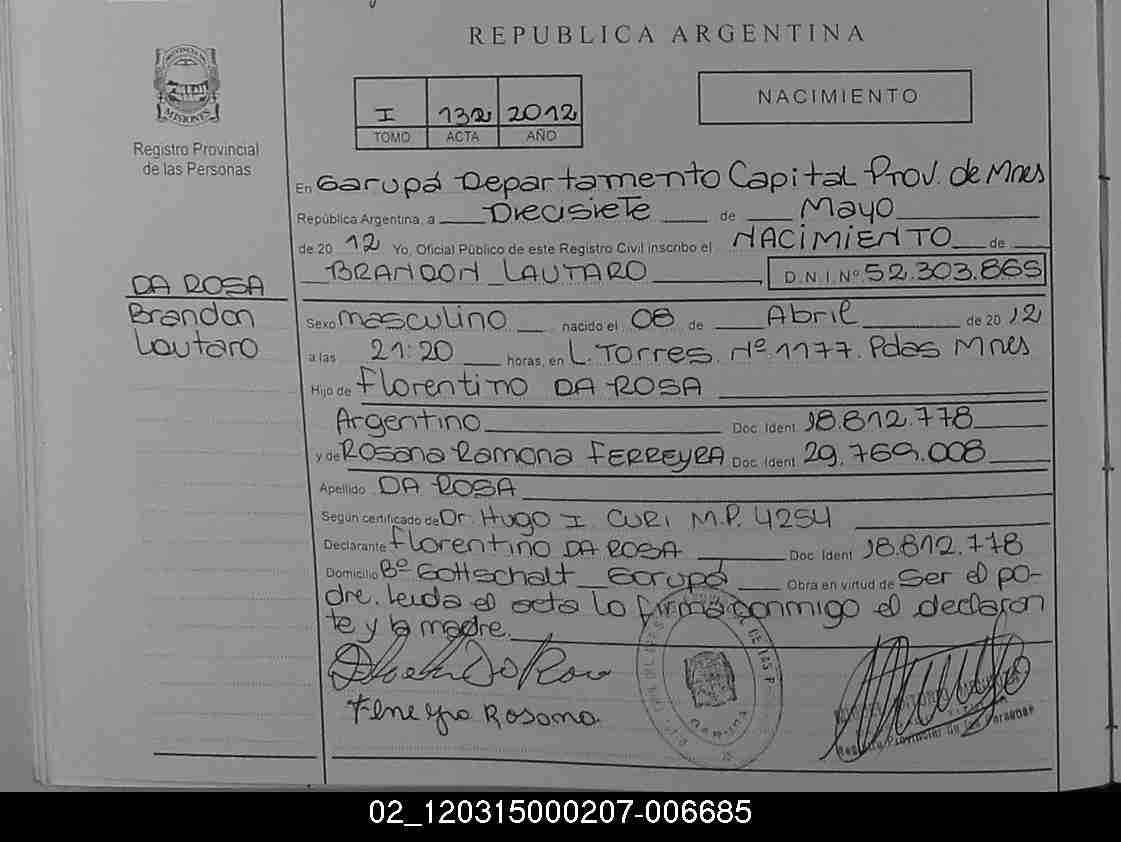 REPUBLICA ARGENTINA
PROVINCIA DE
MISIONES
Registro Provincial
de las Personas
I 132 2012
TOMO ACTA AÑO
NACIMIENTO
En Garupá Departamento Capital Prov. de Mnes
República Argentina, a Diecisiete de Mayo
de 20 12 Yo, Oficial Público de este Registro Civil inscribo el NACIMIENTO de
BRANDON LAUTARO D.N.I. Nº. 52.303.865
DA ROSA
Brandon
Lautaro
Sexo masculino nacido el 08 de Abril de 20 12
a las 21:20 horas, en L. Torres. Nº 1177. Pdas Mnes
Hijo de Florentino DA ROSA
Argentino Doc. Ident. 18.812.778
y de Rosana Ramona FERREYRA Doc. Ident. 29.769.008
Apellido DA ROSA
Según certificado de Dr. Hugo I. CURI M.P. 4254
Declarante Florentino DA ROSA Doc. Ident. 18.812.778
Domicilio Bº Gottschalt Garupá Obra en virtud de Ser el pa-
dre. Leida el acta la firma conmigo el declaran
te y la madre.
Da Rosa
Ferreyra Rosana
02_120315000207-006685